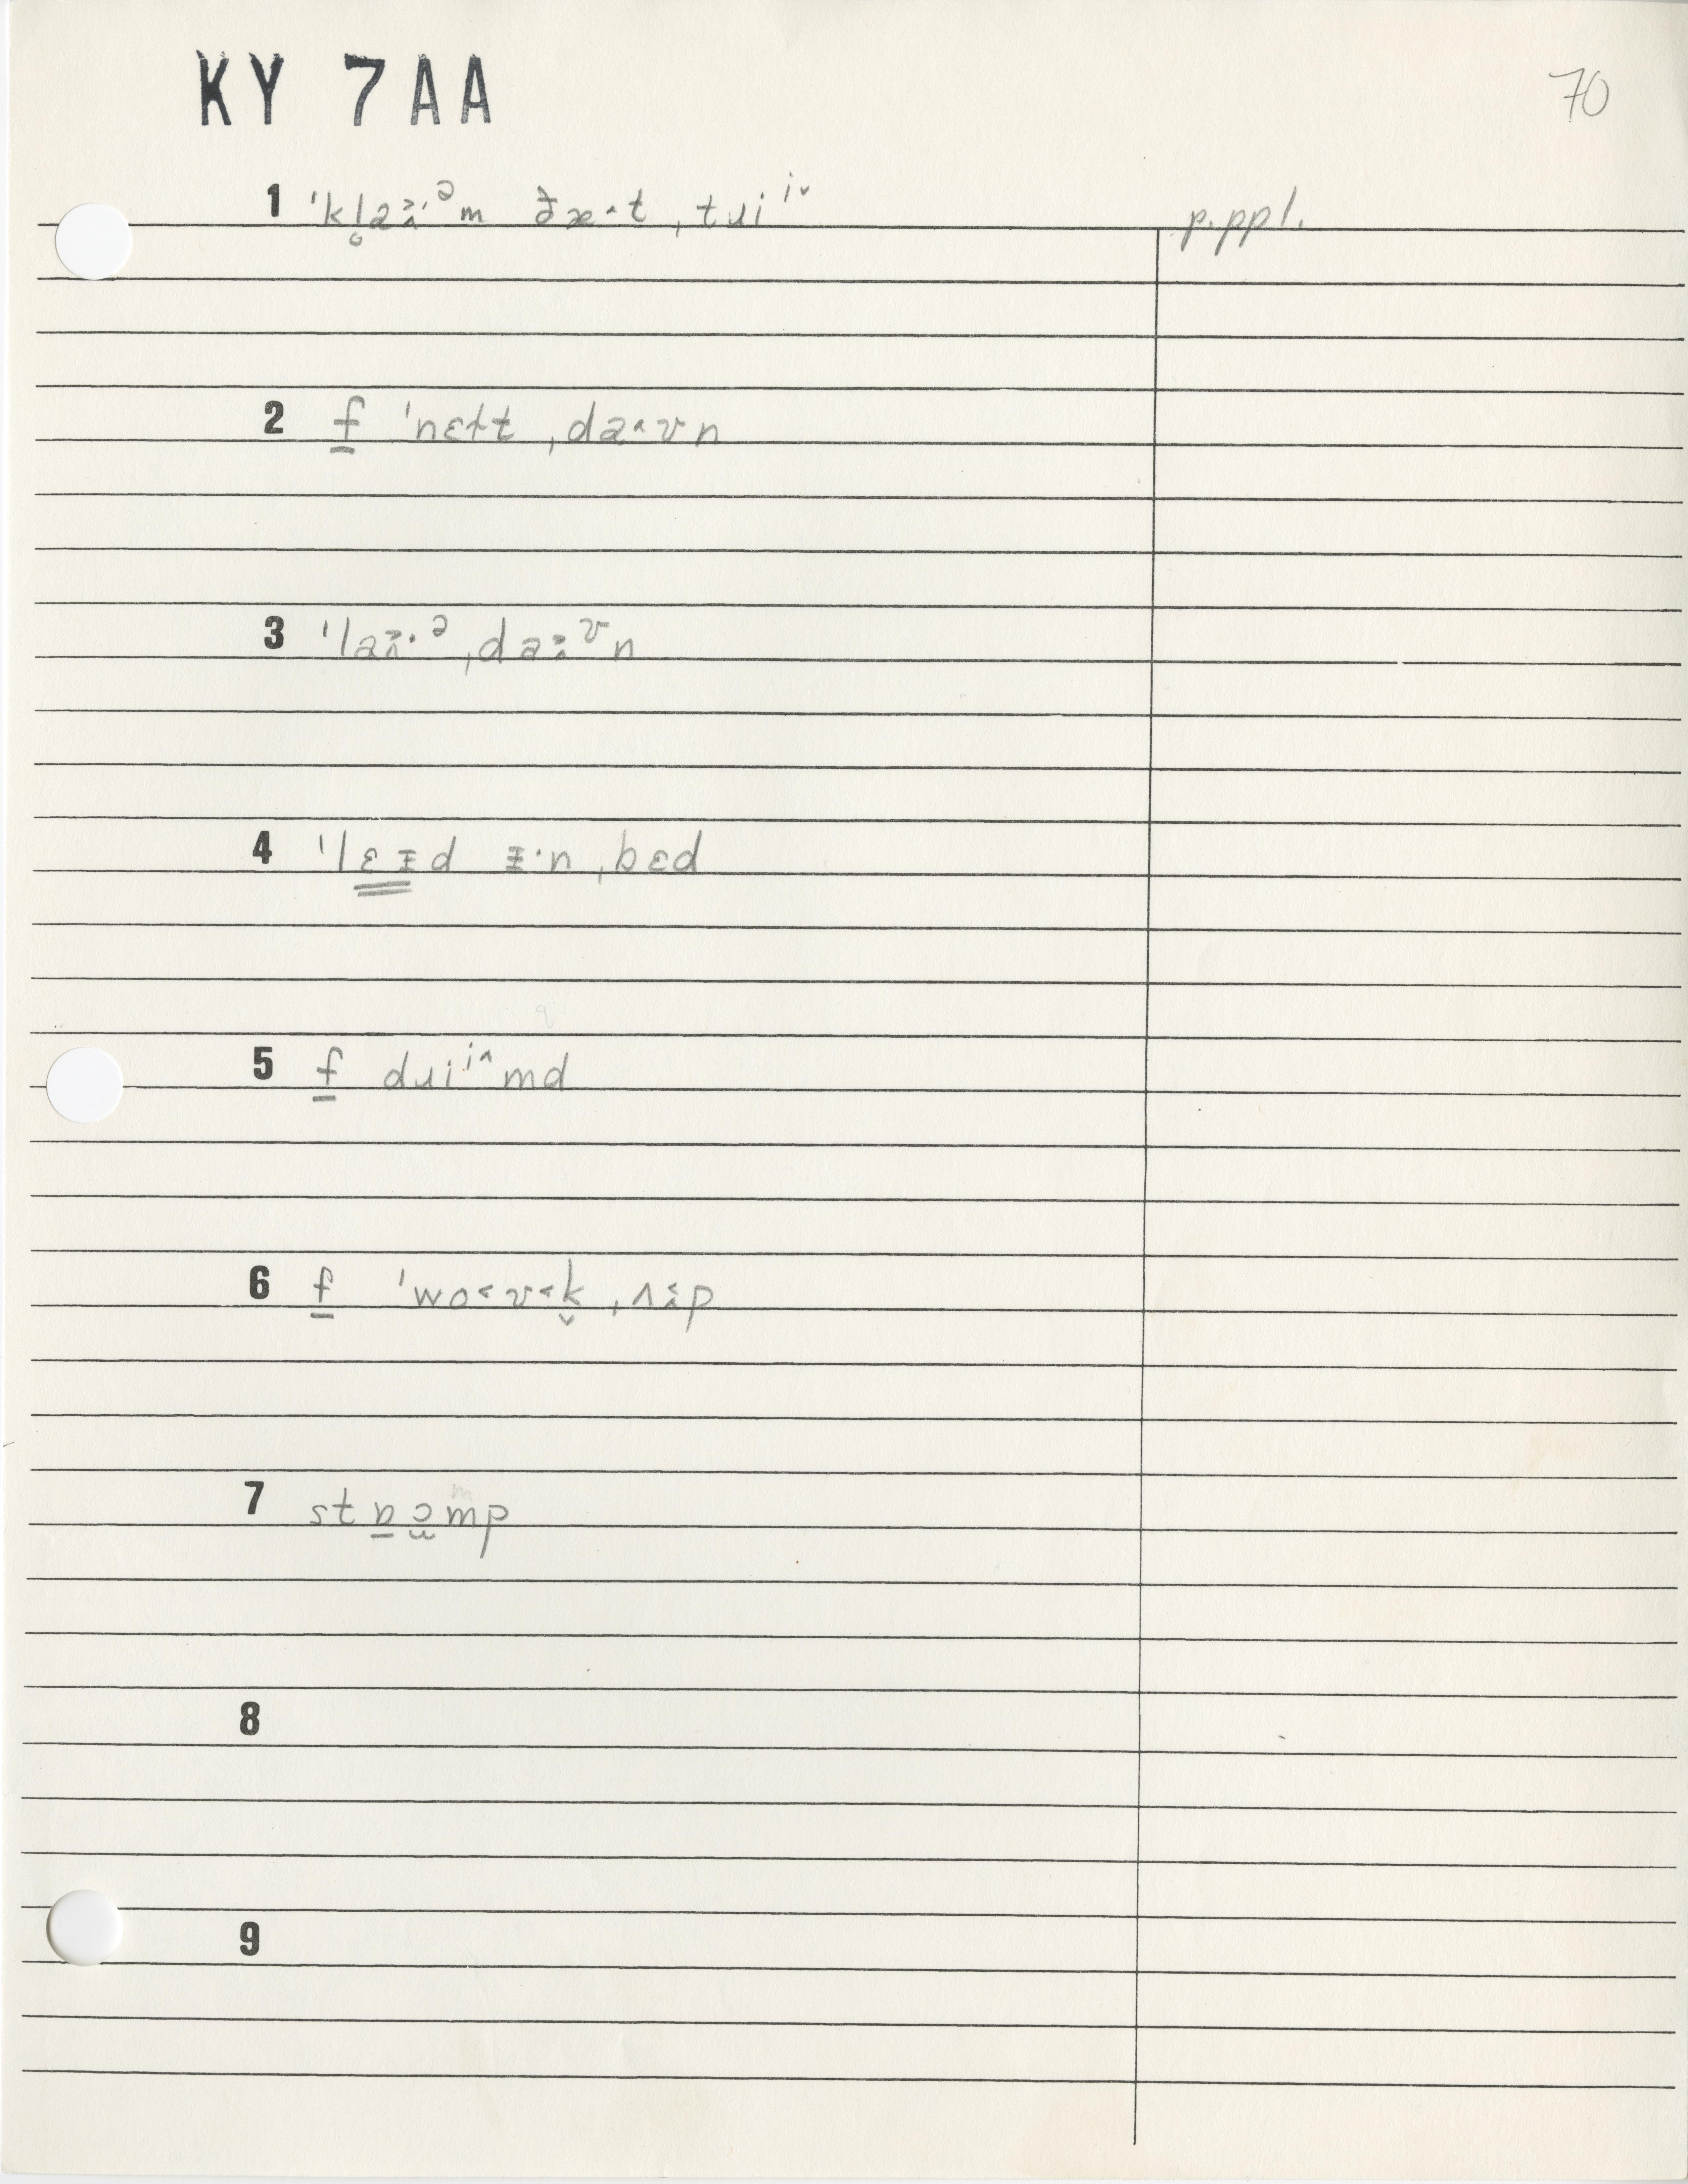 KY 7AA
70
1 ˈkl̥a˃˄·ᵊm ðæ·t ˌtɹiⁱ˅
p.ppl.
2 f̲ ˈnɛɫt ˌda˄ʊn
3 ˈla˃˄·ᵊ ˌda˃˄ᶷn
4 ˈlɛɪd ɪ·n ˌbɛd
5 f̲ dɹiⁱ˄md
6 f̲ ˈwo˂ʊ˂k̬ ˌʌ˂˄p
7 stɒɔmp
8
9